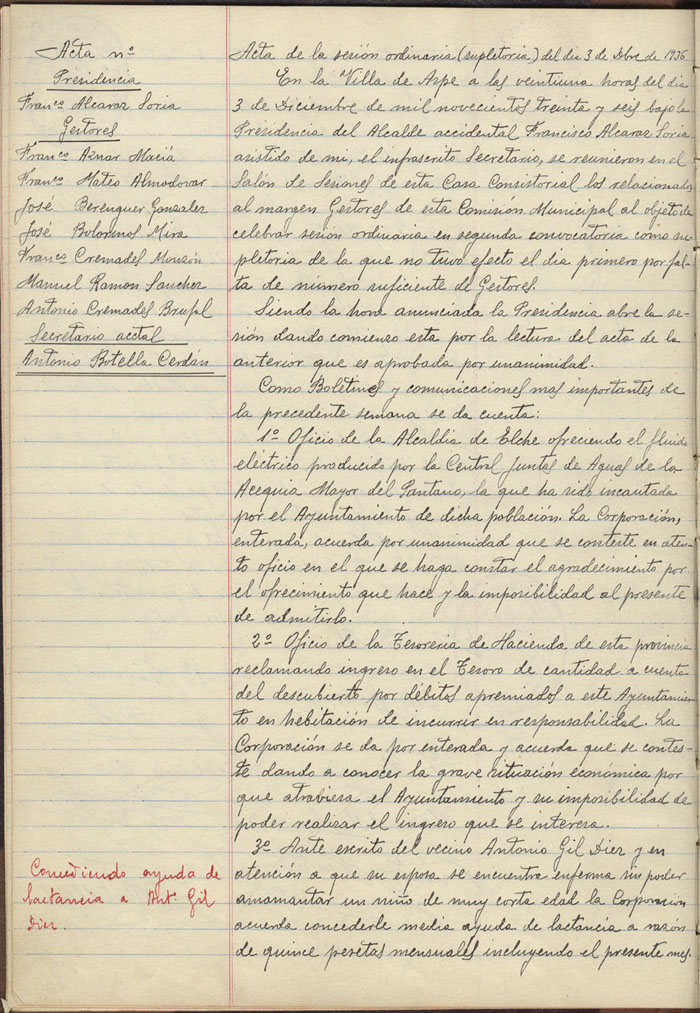 Acta nº
Presidencia
Franco Alcaraz Soria
Gestores
Franco Aznar Maciá
Franco Mateo Almodovar
José Berenguer Gonzalez
José Bolorinos Mira
Franco Cremades Monzón
Manuel Ramon Sanchez
Antonio Cremades Brufal
Secretario acctal
Antonio Botella Cerdán
Acta de la sesión ordinaria (supletoria) del dia 3 de Dbre de 1936
En la Villa de Aspe a las veintiuna horas del dia
3 de Diciembre de mil novecientos treinta y seis bajo la
Presidencia del Alcalde accidental Francisco Alcaraz Soria
asistido de mi, el infrascrito Secretario, se reunieron en el
Salón de Sesiones de esta Casa Consistorial los relacionados
al margen Gestores de esta Comisión Municipal al objeto de
celebrar sesión ordinaria en segunda convocatoria como su-
pletoria de la que no tuvo efecto el dia primero por fal-
ta de numero suficiente de Gestores.
Siendo la hora anunciada la Presidencia abre la se-
sión dando comienzo esta por la lectura del acta de la
anterior que es aprobada por unanimidad.
Como Boletines y comunicaciones mas importantes de
la precedente semana se da cuenta:
1º Oficio de la Alcaldia de Elche ofreciendo el fluido
eléctrico producido por la Central Juntas de Aguas de la
Acequia Mayor del Pantano, la que ha sido incautada
por el Ayuntamiento de dicha población. La Corporación,
enterada, acuerda por unanimidad que se conteste en aten-
to oficio en el que se haga constar el agradecimiento por
el ofrecimiento que hace y la imposibilidad al presente
de admitirlo.
2º Oficio de la Tesoreria de Hacienda de esta provincia
reclamando ingreso en el Tesoro de cantidad a cuenta
del descubierto por débitos apremiados a este Ayuntamien-
to en hebitación de incurrir en responsabilidad. La
Corporación se da por enterada y acuerda que se contes-
te dando a conocer la grave situación económica por
que atraviesa el Ayuntamiento y su imposibilidad de
poder realizar el ingreso que se interesa.
3º Ante escrito del vecino Antonio Gil Diez y en
atención a que su esposa se encuentra enferma sin poder
amamantar un niño de muy corta edad la Corporacion
acuerda concederle media ayuda de lactancia a razón
de quince pesetas mensuales incluyendo el presente mes.
Concediendo ayuda de
lactancia a Ant. Gil
Diez.